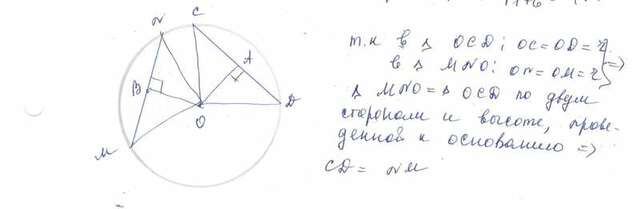 N
C
A
B
O
D
M
т.к в △ OCD: OC=OD=r
в △ MNO: ON=OM=r } =>
△ MNO = △ OCD по двум
сторонам и высоте, прове-
денной к основанию =>
CD = NM